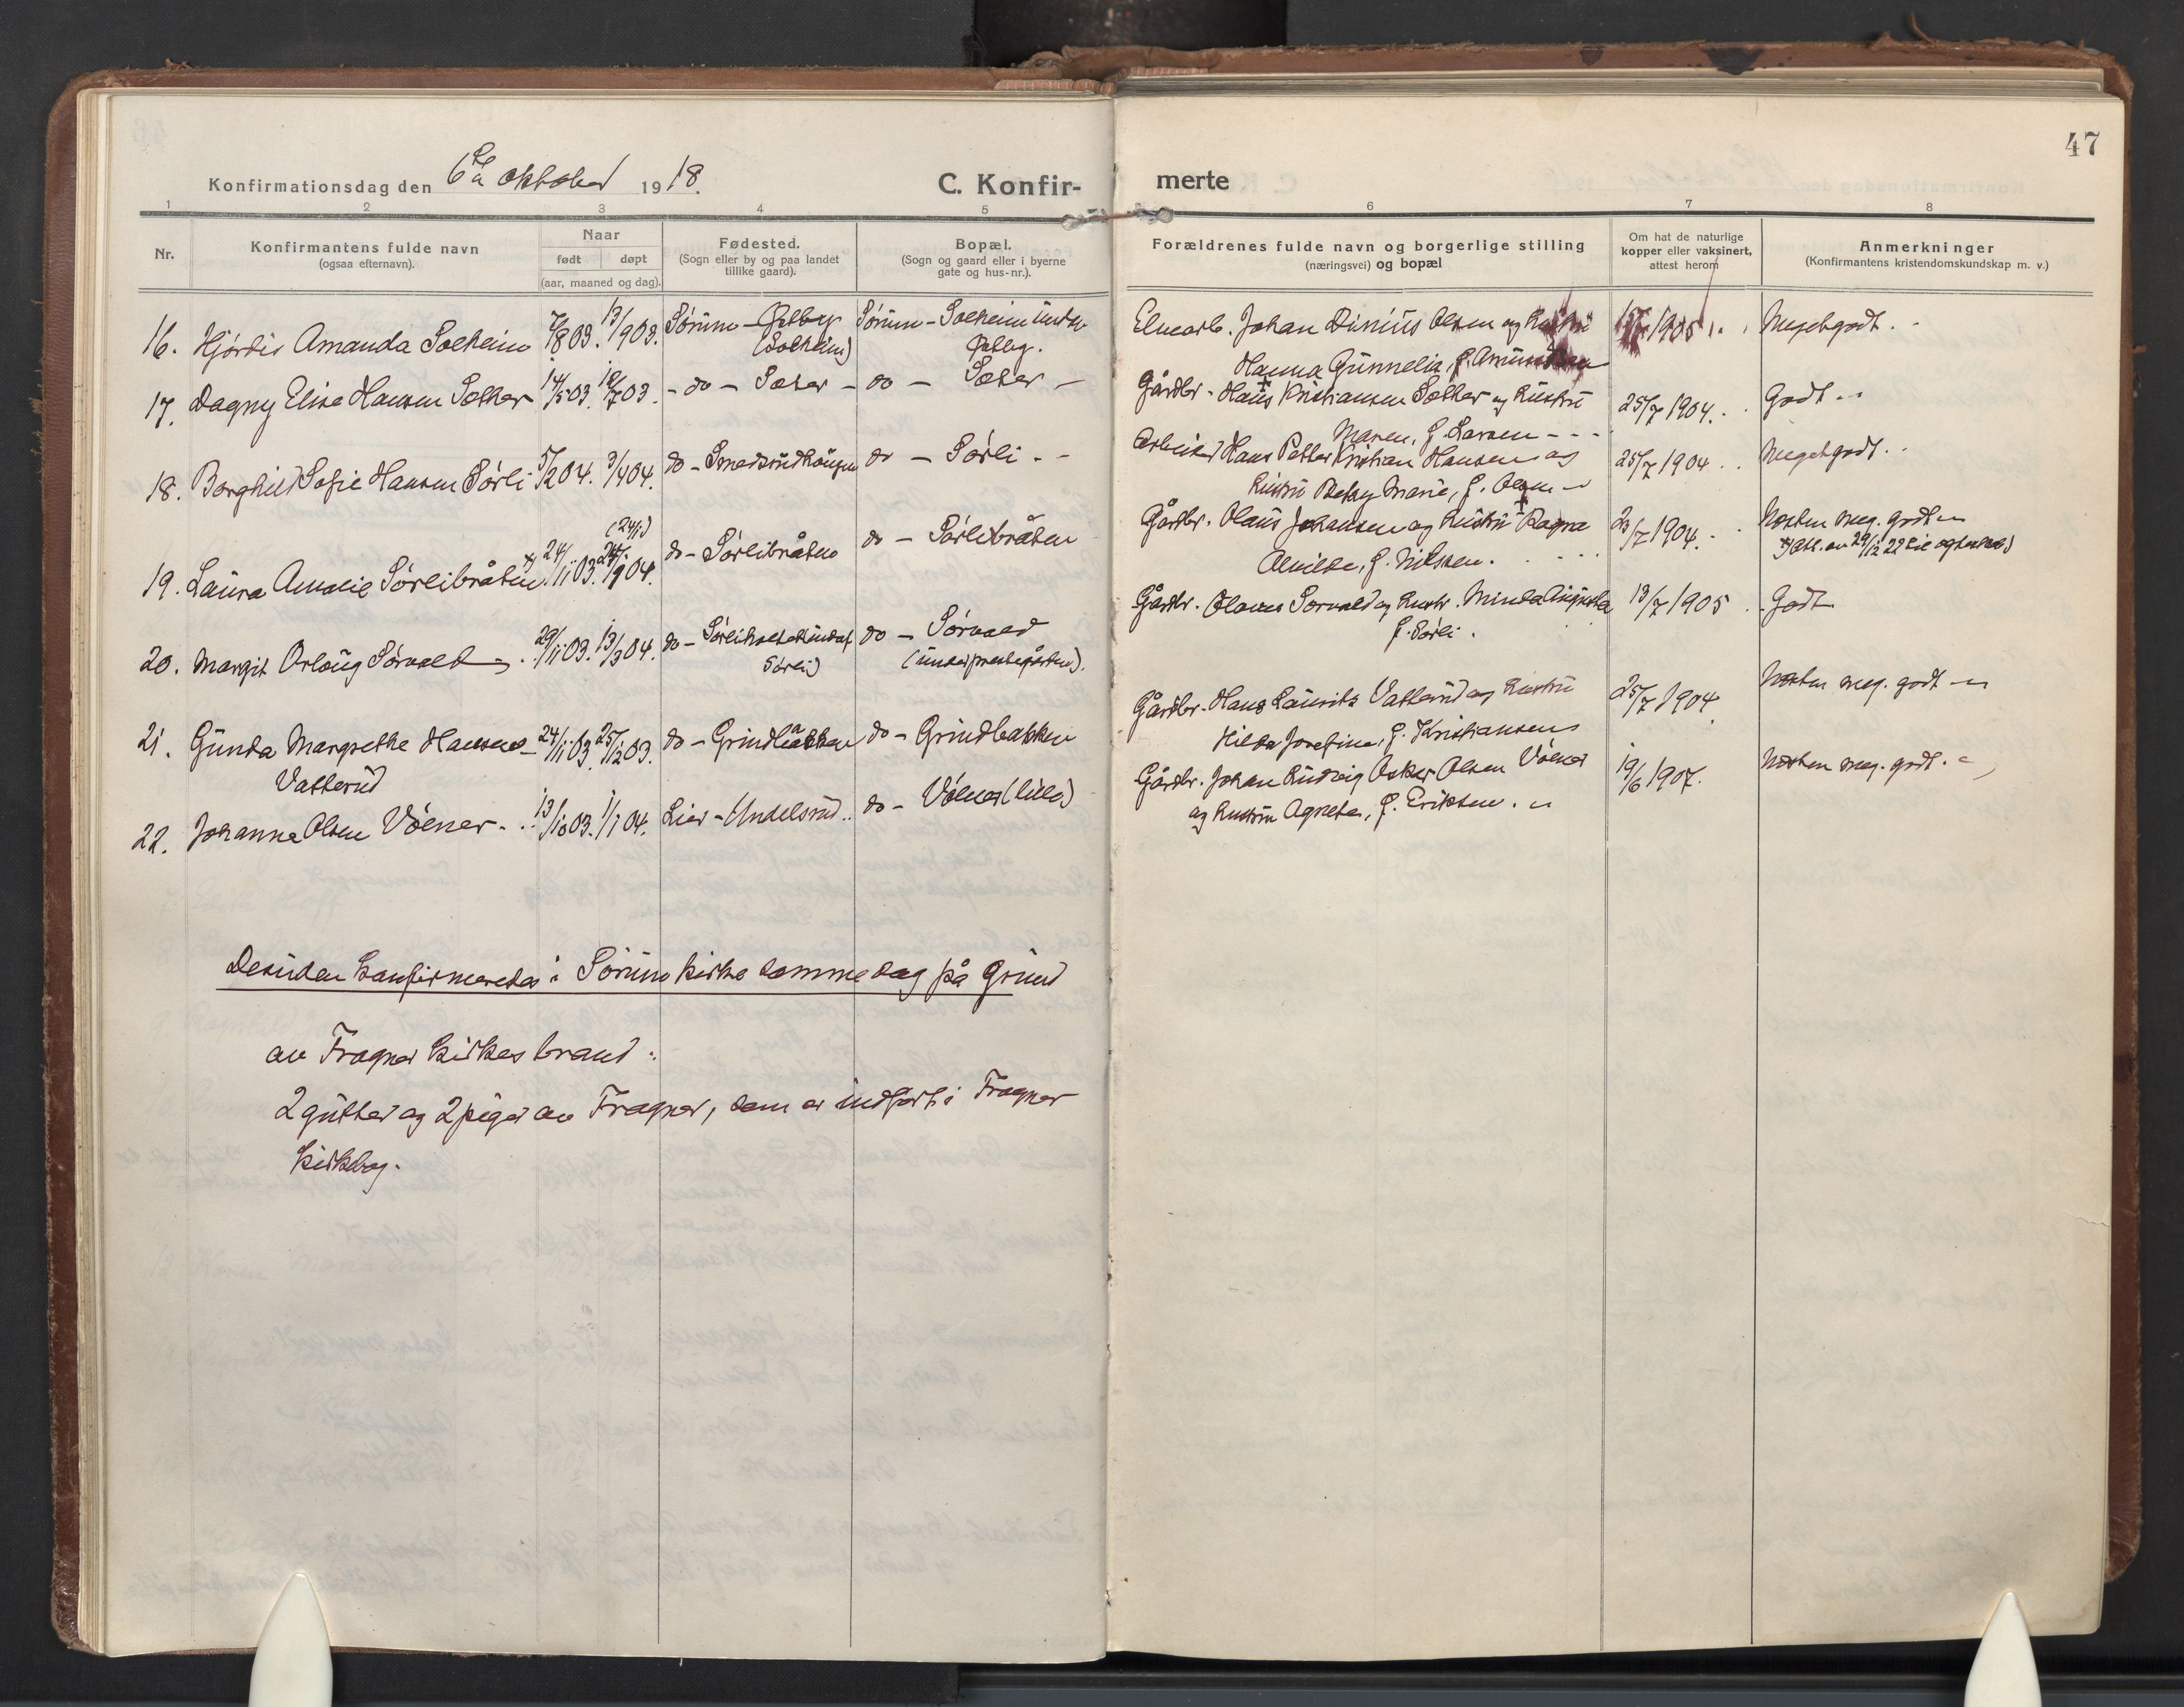 47
Konfirmationsdag den 6te oktober 1918.
C. Konfir-
merte
1 2 3 4 5 6 7 8
Nr.
Konfirmantens fulde navn
(ogsaa efternavn).
Naar
født døpt
(aar, maaned og dag).
Fødested.
(Sogn eller by og paa landet
tillike gaard).
Bopæl.
(Sogn og gaard eller i byerne
gate og hus-nr.).
Forældrenes fulde navn og borgerlige stilling
(næringsvei) og bopæl
Om hat de naturlige
kopper eller vaksinert,
attest herom
Anmerkninger
(Konfirmantens kristendomskundskap m. v.)
16. Hjørdis Amanda Solheim 7/8 03. 13/9 03. Sørum - (Solheim) Sørum - Solheim under
Elvearb. Johan Dinius Olsen og hustru 1905 Megetgodt.
Hanna Gunnelia, f. Amundsen
17. Dagny Elise Hansen Sæther 14/5 03. 12/7 03. - do - Sæter - do - Sæter -
Gårdbr. Hans Kristiansen Sæther og hustru 25/7 1904. Godt
Maren, f. Larsen - - -
18. Borghild Sofie Hansen Sørli 5/2 04. 3/4 04. do - Smedsrudhaugen do - Sørli - -
Arbeider Hans Petter Kristian Hansen og 25/7 1904. Megetgodt.
hustru Betsy Marie, f. Olsen
(24/1)
19. Laura Amalie Sørlibråten x) 24/11 03. 24/1 04. do - Sørlibråten do - Sørlibråten
Gårdbr. Olaus Johansen og hustru Ragna 23/7 1904. Næsten meg. godt
Alvilde, f. Nilssen. x) Att. av 29/12 22
20. Margit Arlaug Sørvald 29/11 03. 13/3 04. do - Sørliholtet (under
Sørli) do - Sørvald
(under prestegården).
Gårdbr. Olaves Sørvald og hustr. Minda Augusta 13/7 1905 Godt
f. Sørli.
21. Gunda Margrethe Hansen 24/11 03. 25/12 03. do - Grindbakken do - Grindbakken
Vatterud
Gårdbr. Hans Lauritz Vatterud og hustru 25/7 1904 Næsten meg. godt
Hilda Josefine, f. Kristiansen
22. Johanne Olsen Vølner 13/10 03. 1/1 04. Lier - Undelsrud. do - Vølner (lille)
Gårdbr. Johan Ludvig Oskar Olsen Vølner 19/6 1907. Næsten meg. godt.
og hustru Agneta, f. Eriksen.
Desuden konfirmeredes i Sørum kirke samme dag på Grund
av Frogner kirkes brand:
2 gutter og 2 piger av Frogner, som er indført i Frogner
kirkebog.